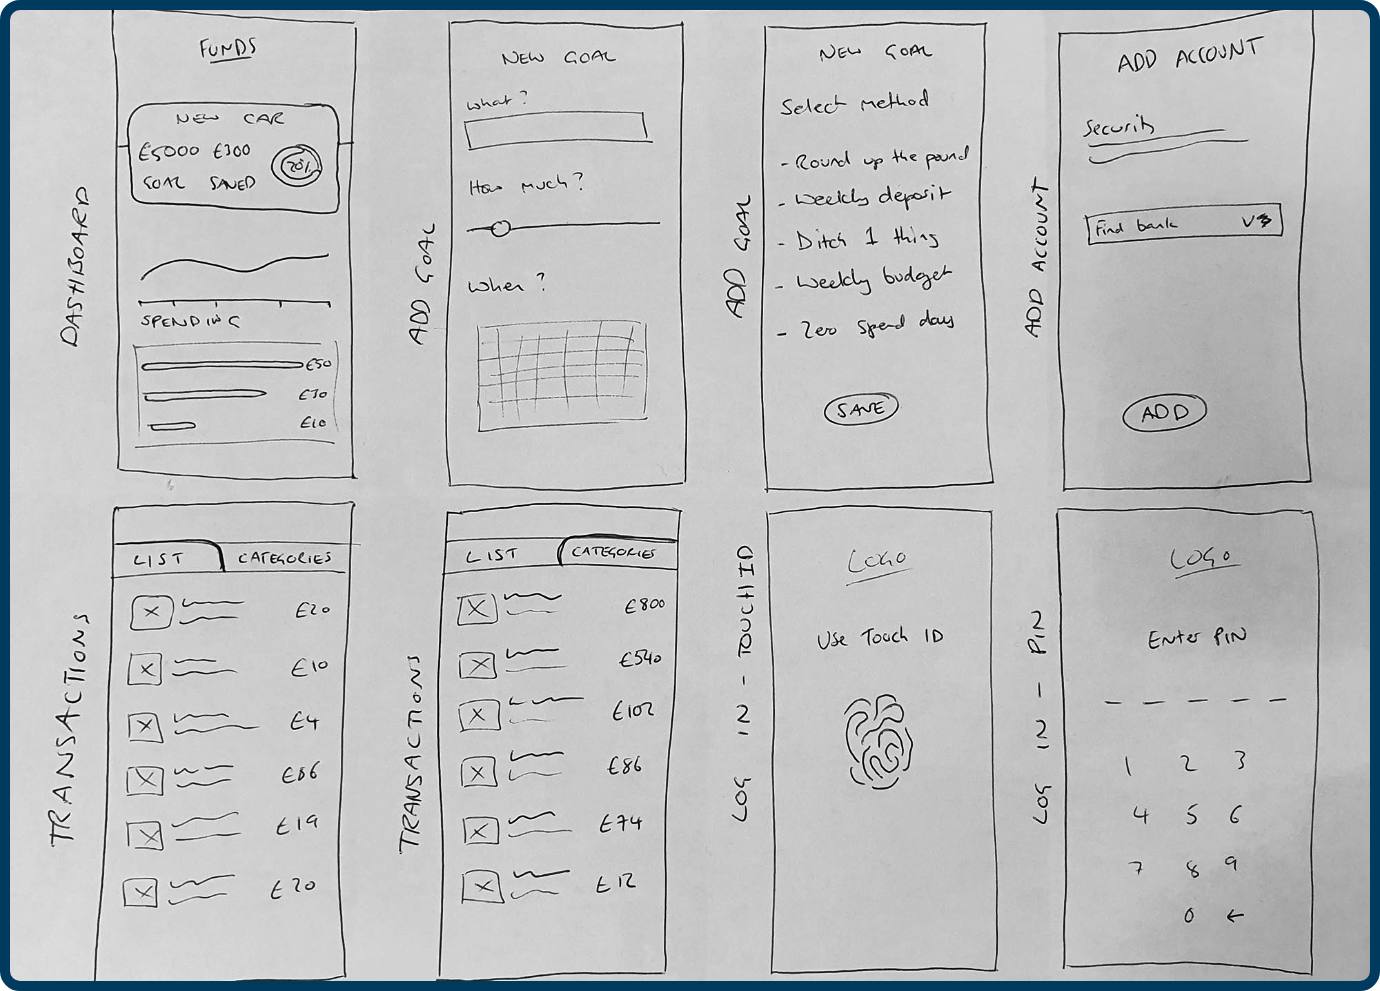 DASHBOARD
FUNDS
NEW CAR
£5000 £300
GOAL SAVED
20%
SPENDING
£50
£30
£10
ADD GOAL
NEW GOAL
What?
How much?
When?
ADD GOAL
NEW GOAL
Select method
- Round up the pound
- Weekly deposit
- Ditch 1 thing
- Weekly budget
- Zero spend day
SAVE
ADD ACCOUNT
ADD ACCOUNT
Security
Find bank
ADD
TRANSACTIONS
LIST CATEGORIES
£20
£10
£4
£86
£19
£20
TRANSACTIONS
LIST CATEGORIES
£800
£540
£102
£86
£74
£12
LOG IN - TOUCH ID
LOGO
Use Touch ID
LOG IN - PIN
LOGO
Enter PIN
1 2 3
4 5 6
7 8 9
0 ←